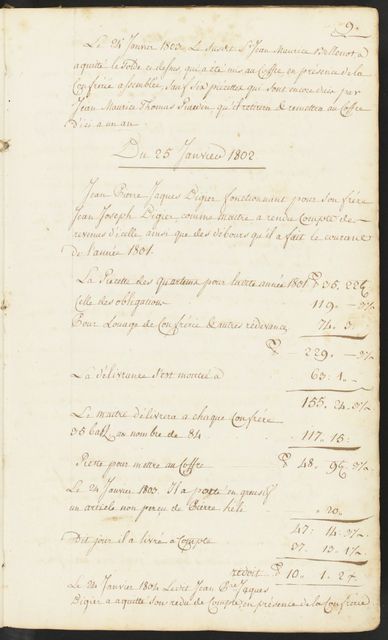 9.
Le 24 Janvier 1803. Le susdit Sr Jean Maurice Bellenot, a
aquitté le solde ci desus, qui a été mis au Coffre, en présence de la
Confrérie assemblée, Sauf six piecettes qui sont encore dues par
Jean Maurice Thomas, qu'il retirera & remettra au Coffre
d'ici a un an
Du 25 Janvier 1802
Jean Pierre Jaques Digier fonctionnant pour son frére
Jean Joseph Digier, comme maitre a rendu Compte des
revenus d'icelle ainsi que des débours qu'il a fait le courant
de l'année 1801.
La Recette des quarteux pour ladite année 1801 35. 22
Celle des obligations 119. —
Pour Louage de Confrérie & autres redevance 74. 3.
229. —
La délivrance s'est montée a 63: 1. —
155. 24.
Le maitre délivrera a chaque Confrére
35 batz au nombre de 84 117. 15:
Reste pour mettre au Coffre 48. 9
Le 24 Janvier 1803. Il a porté en
un article non perçu de Pierre 20.
47: 14.
Dit jour il a livré a Compte 37. 13.
redoit 10. 1. 2
Le 24 Janvier 1804 Ledit Jean Pre Jaques
Digier a aquitté son redu de Compte, en présence de la Confrérie